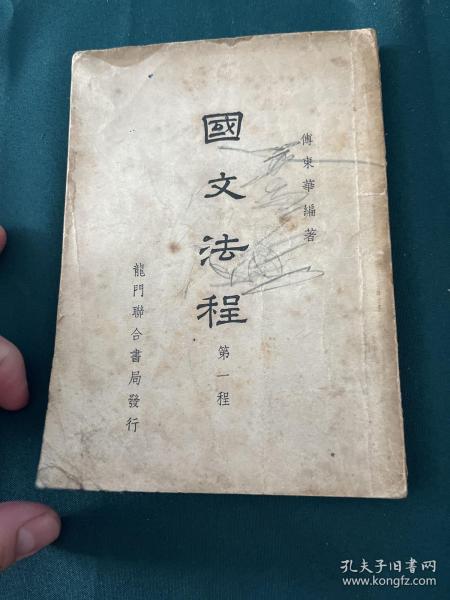 傅東華編著
國文法程
第一程
龍門聯合書局發行
孔夫子旧书网
www.kongfz.com